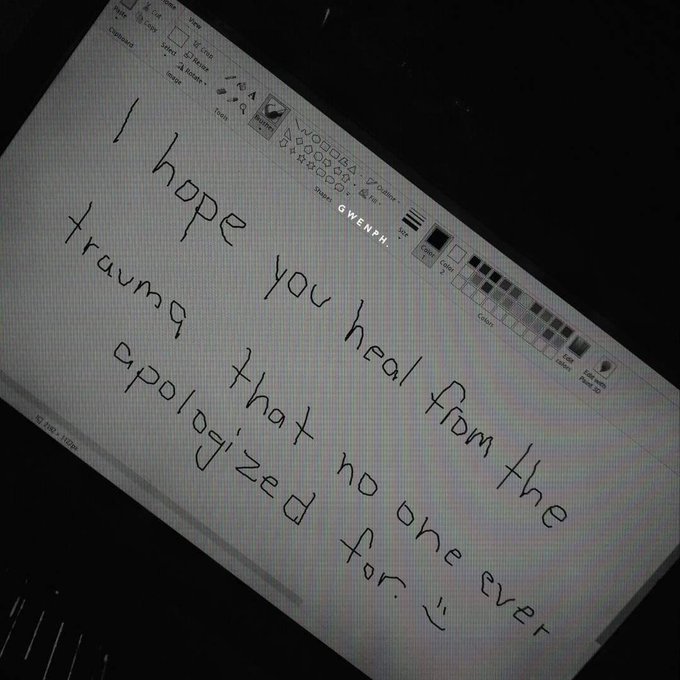 Home
View
Paste
Cut
Copy
Clipboard
Select
Crop
Resize
Rotate
Image
Tools
Brushes
Shapes
Outline
Fill
Size
Color 1
Color 2
Colors
Edit colors
Edit with Paint 3D
GWENPH.
I hope you heal from the
trauma that no one ever
apologized for. :)